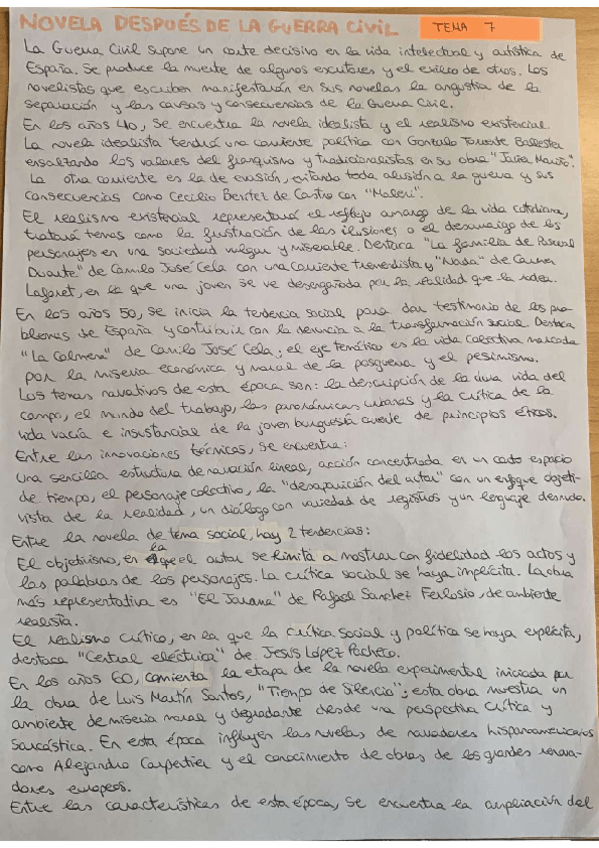 NOVELA DESPUÉS DE LA GUERRA CIVIL TEMA 7
La Guerra Civil supone un corte decisivo en la vida intelectual y artística de
España. Se produce la muerte de algunos escritores y el exilio de otros. Los
novelistas que escriben manifestarán en sus novelas la angustia de la
separación y las causas y consecuencias de la Guerra Civil.
En los años 40, se encuentra la novela idealista y el realismo existencial
La novela idealista tendrá una corriente política con Gonzalo Torrente Ballester
ensaltando los valores del franquismo y tradicionalistas en su obra "Javier Mariño".
La otra corriente es la de evasión, evitando toda alusión a la guerra y sus
consecuencias como Cecilio Benítez de Castro con
El realismo existencial representará el reflejo amargo de la vida cotidiana,
tratará temas como la frustración de las ilusiones o el desarraigo de los
personajes en una sociedad vulgar y miserable. Destaca "La familia de Pascual
Duarte" de Camilo José Cela con una corriente tremendista y "Nada" de Carmen
Laforet, en la que una joven se ve desengañada por la realidad que la rodea.
En los años 50, se inicia la tendencia social para dar testimonio de los pro-
blemas de España y contribuir con la denuncia a la transformación social. Destaca
"La Colmena" de Camilo José Cela; el eje temático es la vida colectiva marcada
por la miseria económica y moral de la posguerra y el pesimismo.
Los temas narrativos de esta época son: la descripción de la dura vida del
campo, el mundo del trabajo, las panorámicas urbanas y la crítica de la
vida vacía e insustancial de la joven burguesía carente de principios éticos.
Entre las innovaciones técnicas, se encuentra:
una sencilla estructura de narración lineal, acción concentrada en un corto espacio
de tiempo, el personaje colectivo, la "desaparición del autor" con un enfoque objeti-
vista de la realidad, un diálogo con variedad de registros y un lenguaje desnudo.
Entre la novela de tema social, hay 2 tendencias:
El objetivismo, en la que el autor se limita a mostrar con fidelidad los actos y
las palabras de los personajes. La crítica social se haya implícita. La obra
más representativa es "El Jarama" de Rafael Sánchez Ferlosio, de ambiente
realista.
El realismo crítico, en la que la crítica social y política se haya explícita,
destaca "Central eléctrica" de Jesús López Pacheco.
En los años 60, comienza la etapa de la novela experimental iniciada por
la obra de Luis Martín Santos, "Tiempo de Silencio"; esta obra muestra un
ambiente de miseria moral y degradante desde una perspectiva crítica y
sarcástica. En esta época influyen las novelas de narradores hispanoamericanos
como Alejandro Carpertier y el conocimiento de obras de los grandes renova-
dores europeos.
Entre las características de esta época, se encuentra la ampliación del